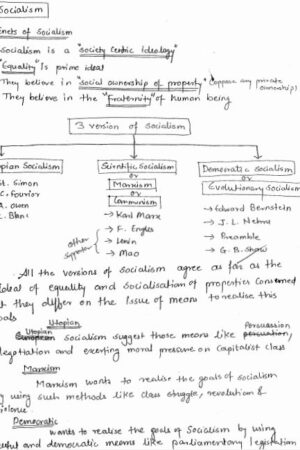 Socialism
enets of Socialism
Socialism is a "Society Centric Ideology"
"Equality" is prime ideal
They believe in "Social ownership of property" (oppose any private ownership)
They believe in the "Fraternity" of human being
3 version of Socialism
opian Socialism
Scientific Socialism
or
Marxism
or
Communism
Democratic Socialism
or
Evolutionary Socialism
St. Simon
C. Fourier
A. Owen
L. Blanc
→ Karl Marx
→ F. Engles
→ Lenin
→ Mao
other
→ Edward Bernstein
→ J. L. Nehru
→ Preamble
→ G. B. Shaw
All the versions of Socialism agree as far as the
ideal of equality and Socialisation of properties Concerned
t they differ on the Issue of means to realise this
oals
Utopian
Utopian Socialism suggest those means like Persuasion
egotiation and exerting moral pressure on Capitalist class
Marxism
Marxism wants to realise the goals of Socialism
y using such methods like class struggle, revolution &
iolence.
Democratic
wants to realise the goals of Socialism by using
eful and democratic means like parliamentary legistation